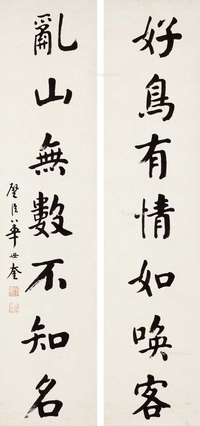 好鳥有情如喚客
亂山無數不知名
璧臣華世奎